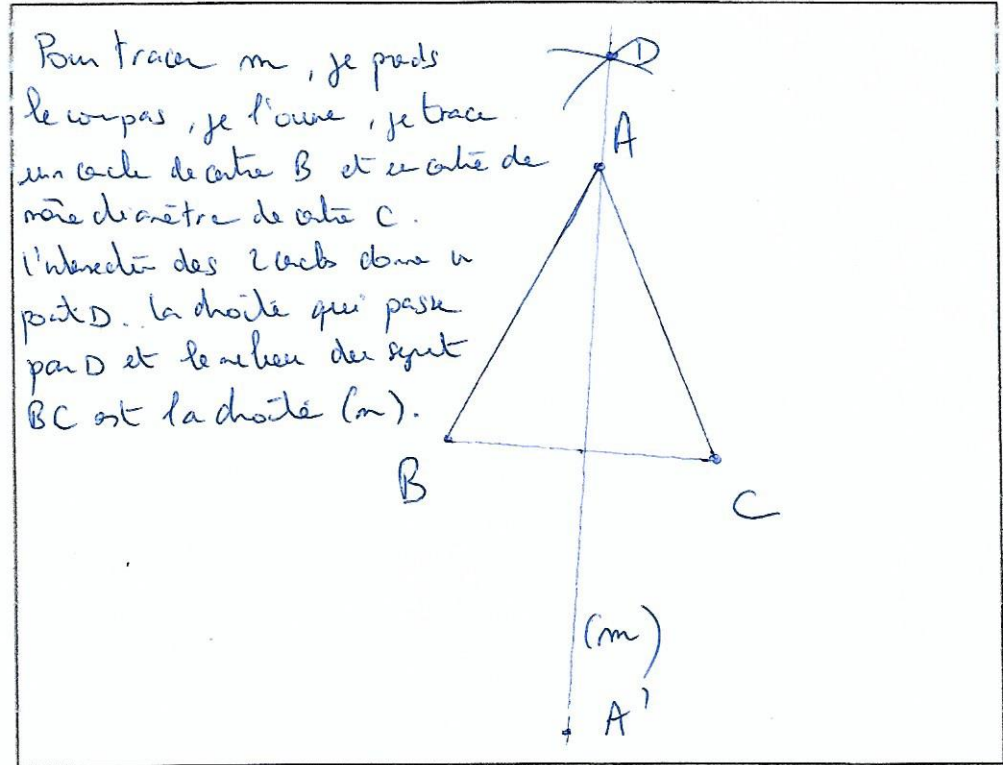 Pour tracer m, je prends
le compas, je l'ouvre, je trace
un cercle de centre B et un cercle de
même diamètre de centre C.
L'intersection des 2 cercles donne un
point D. la droite qui passe
par D et le milieu du segment
BC est la droite (m).
D
A
B
C
(m)
A'